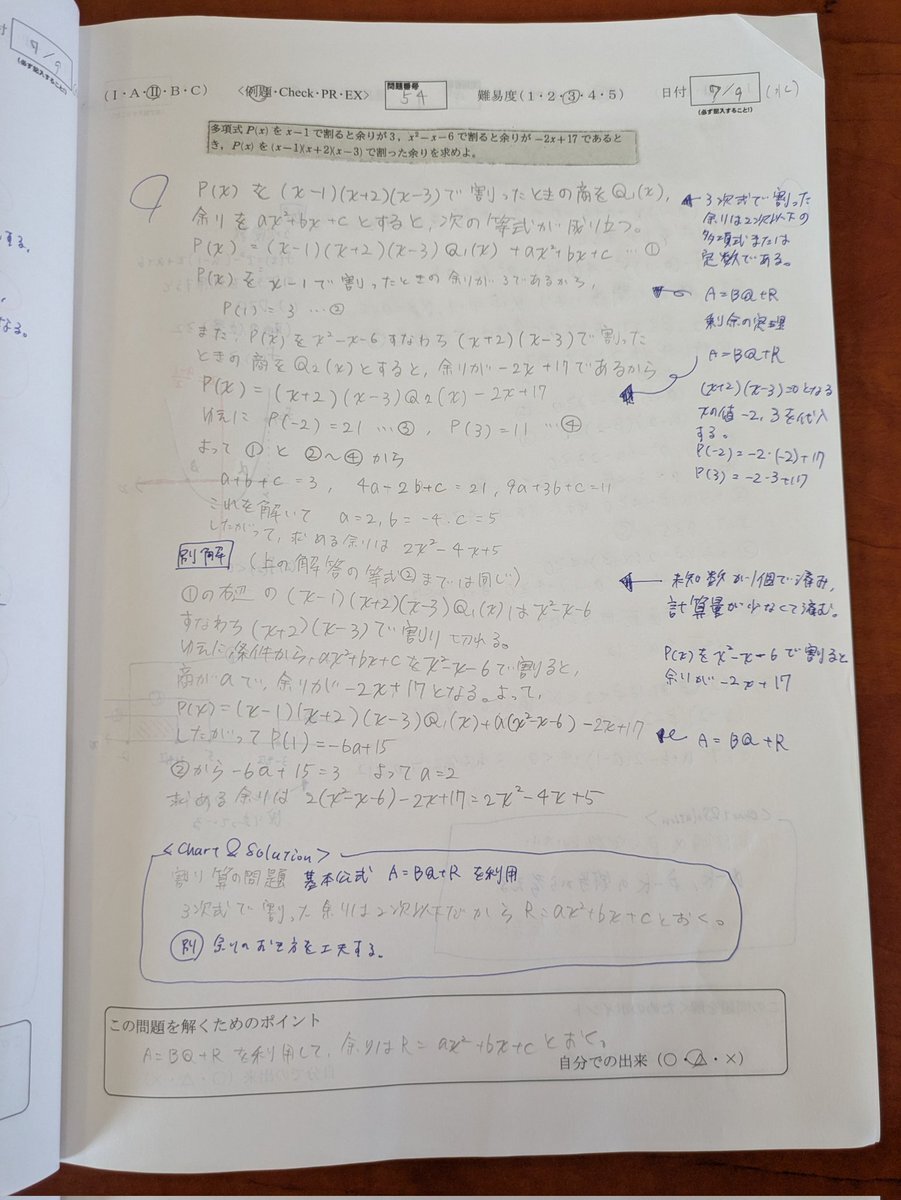 7/9
(必ず記入すること!)
(I・A・II・B・C) <例題・Check・PR・EX> 問題番号 54 難易度(1・2・3・4・5) 日付 7/9 (水)
(必ず記入すること!)
多項式 P(x) を x−1 で割ると余りが 3, x²−x−6 で割ると余りが −2x+17 であると
き, P(x) を (x−1)(x+2)(x−3) で割った余りを求めよ。
P(x) を (x-1)(x+2)(x-3)で割ったときの商をQ₁(x),
余りをax²+bx+cとすると,次の等式が成り立つ。
P(x) = (x-1)(x+2)(x-3)Q₁(x) + ax²+bx+c … ①
P(x)を x-1 で割ったときの余りが3であるから,
P(1)=3 …②
また, P(x)を x²-x-6 すなわち (x+2)(x-3)で割った
ときの商をQ₂(x)とすると, 余りが-2x+17であるから
P(x) = (x+2)(x-3)Q₂(x)-2x+17
ゆえに P(-2)=21 …③, P(3)=11 …④
よって ①と②〜④から
a+b+c=3, 4a-2b+c=21, 9a+3b+c=11
これを解いて a=2, b=-4, c=5
したがって, 求める余りは 2x²-4x+5
3次式で割った
余りは2次以下の
多項式または
定数である。
A=BQ+R
剰余の定理
A=BQ+R
(x+2)(x-3)=0となる
xの値-2, 3を代入
する。
P(-2)=-2・(-2)+17
P(3)=-2・3+17
別解 (上の解答の等式②までは同じ)
①の右辺の (x-1)(x+2)(x-3)Q₁(x)はx²-x-6
すなわち (x+2)(x-3)で割り切れる。
ゆえに,条件から,ax²+bx+cをx²-x-6で割ると,
商がaで,余りが-2x+17となる。よって,
P(x)=(x-1)(x+2)(x-3)Q₁(x)+a(x²-x-6)-2x+17
したがって P(1)=-6a+15
②から -6a+15=3 よって a=2
求める余りは 2(x²-x-6)-2x+17=2x²-4x+5
未知数が1個で済み,
計算量が少なくて済む。
P(x)をx²-x-6で割ると
余りが -2x+17
A=BQ+R
<Chart & Solution>
割り算の問題 基本公式 A=BQ+R を利用
3次式で割った余りは2次以下だから R=ax²+bx+cとおく。
別 余りのおき方を工夫する。
この問題を解くためのポイント
A=BQ+Rを利用して, 余りはR=ax²+bx+cとおく。
自分での出来(○・△・×)